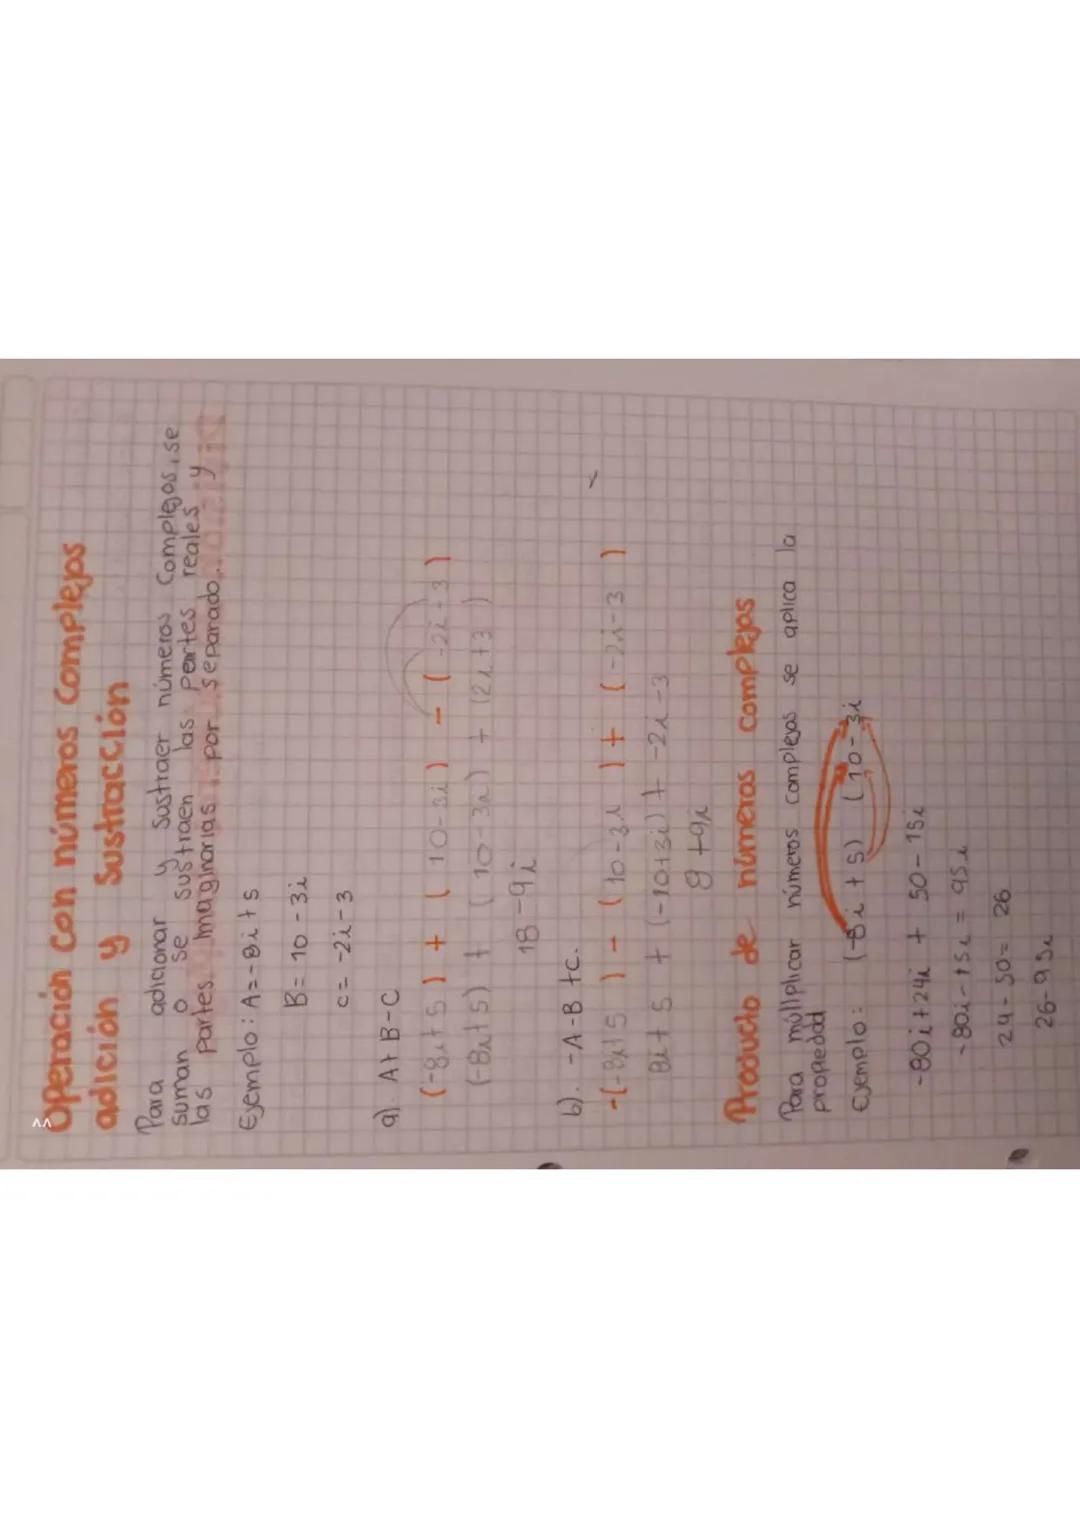 Operación con números Complejos
adición y Sustracción
Para adicionar y Sustraer números Complejos, se
suman o se sustraen las partes reales y
las partes imaginarias por separado.
Ejemplo: A=-8i+5
B= 10-3i
C= -2i-3
a). A+B-C
(-8i+5) + (10-3i) - (-2i-3)
(-8i+5) + (10-3i) + (2i+3)
18-9i
b). -A-B+C.
-(-8i+5) - (10-3i) + (-2i-3)
8i+5 + (-10+3i) + -2i-3
8+9i
Producto de números complejos
Para múltiplicar números complejos se aplica la
propiedad
Ejemplo: (-8i+5) (10-3i
-80i+24i + 50-15i
-80i-15i = 95i
24-50= 26
26-95i